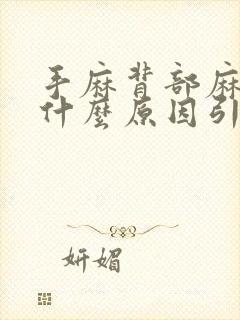 手麻背部麻
什麼原因引
妍媚